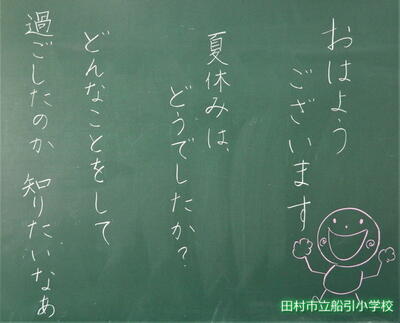 おはよう
ございます
夏休みは、
どうでしたか?
どんなことをして
過ごしたのか 知りたいなぁ
田村市立船引小学校